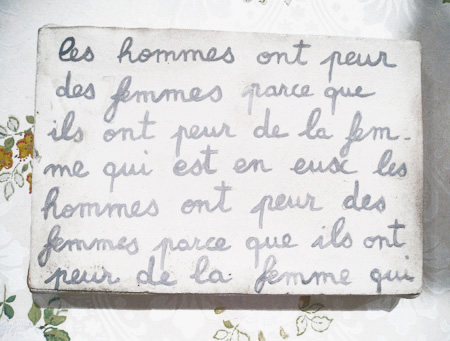 les hommes ont peur
des femmes parce que
ils ont peur de la fem-
me qui est en eux les
hommes ont peur des
femmes parce que ils ont
peur de la femme qui